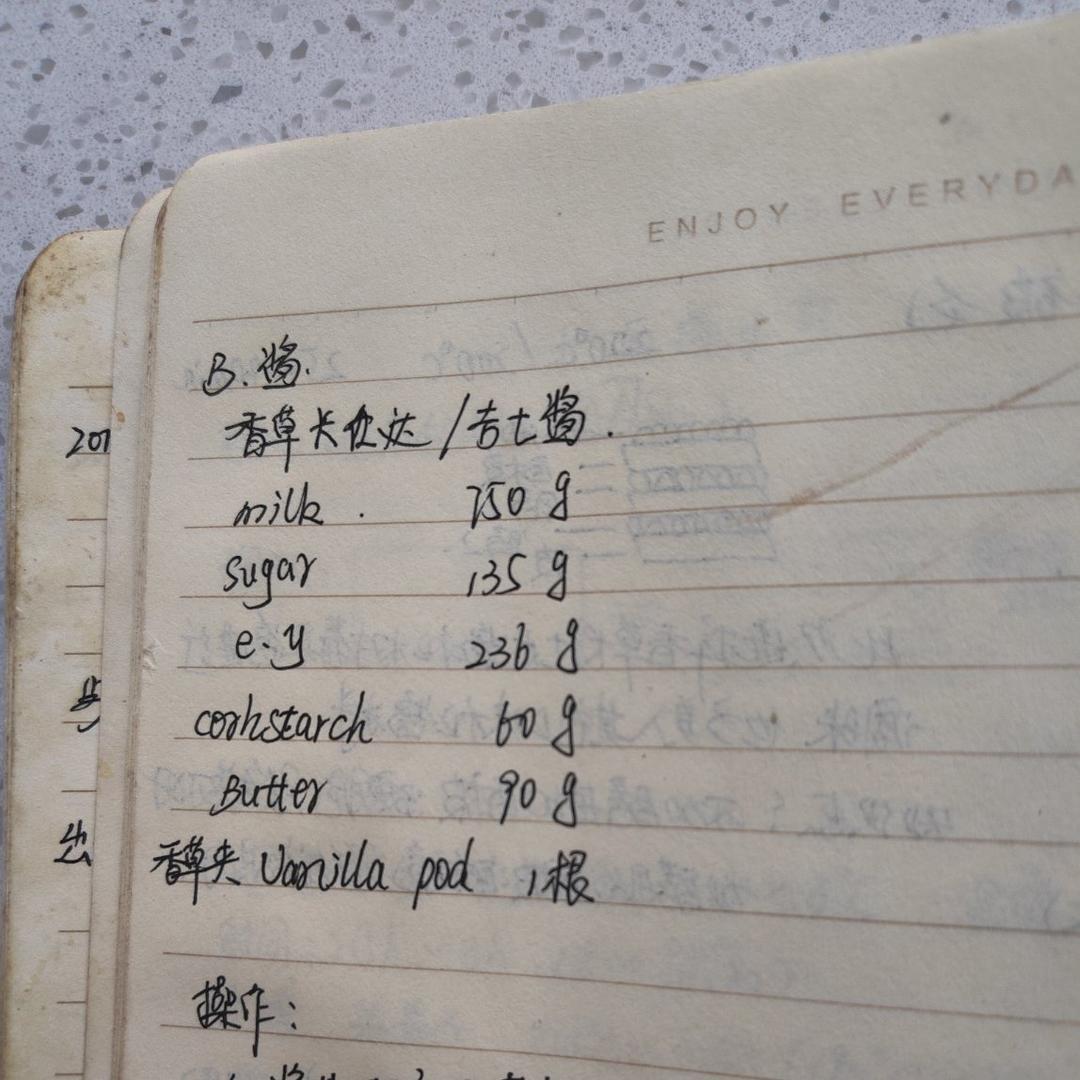 ENJOY EVERYDA
B. 酱.
香草卡仕达 / 吉士酱.
milk. 750 g
sugar 135 g
e.y 236 g
cornstarch 60 g
Butter 90 g
香草夹 Vanilla pod 1根
操作:
201
出